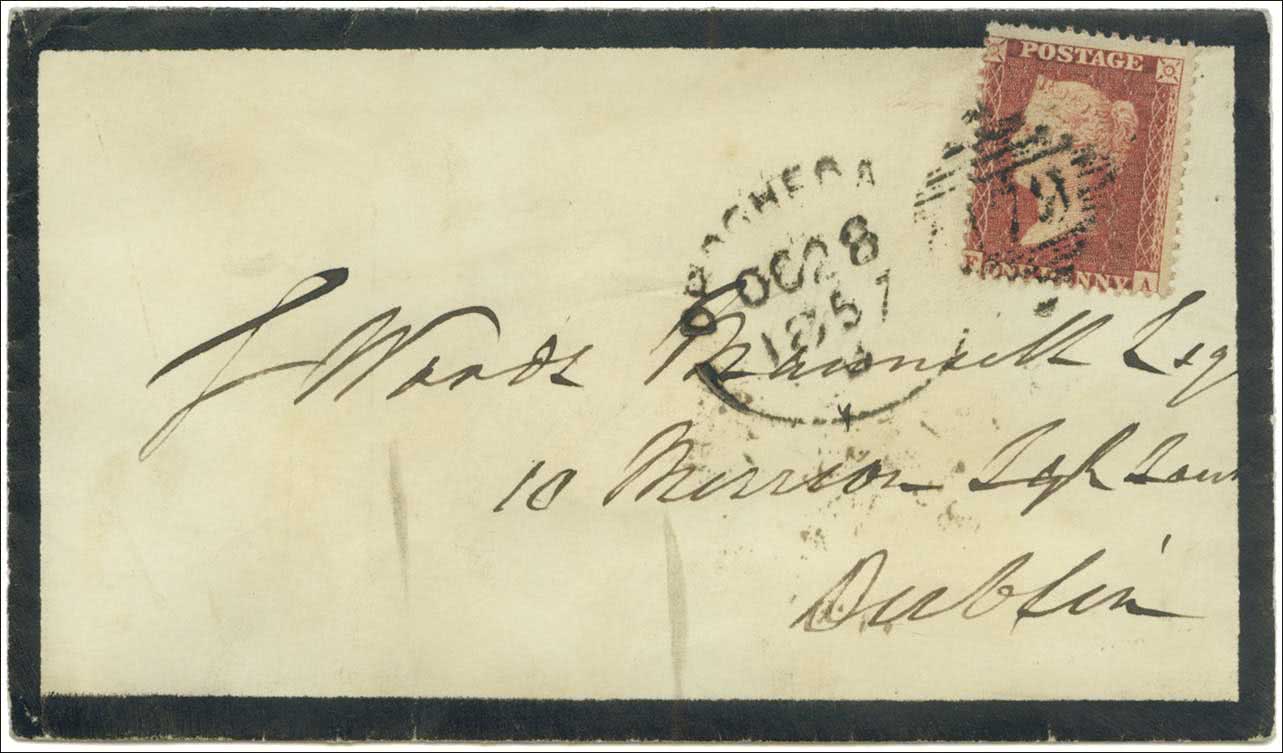 POSTAGE
179
F ONE PENNY A
DROGHEDA
OC 28
1857
J Woods Maunsell Esq
10 Merrion Sqr Sout
Dublin